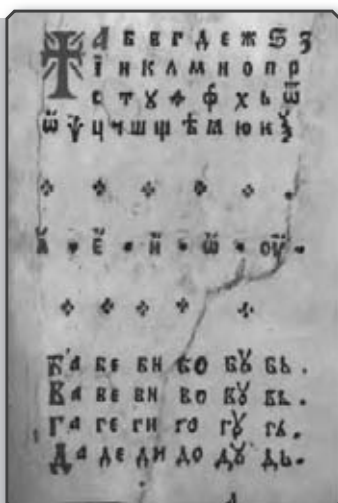 А Б В Г Д Е Ж Ѕ З
Ї Н К Л М Н О П Р
С Т Ꙋ Ф Х Ь Ѿ
Ц Ч Ш Щ Ѣ Ѫ Ю
А · Е · И · Ѡ · ОУ ·
Ба бе би бо бꙋ бь.
Ва ве ви во вꙋ вь.
Га ге ги го гꙋ гь.
Да де ди до дꙋ дь.